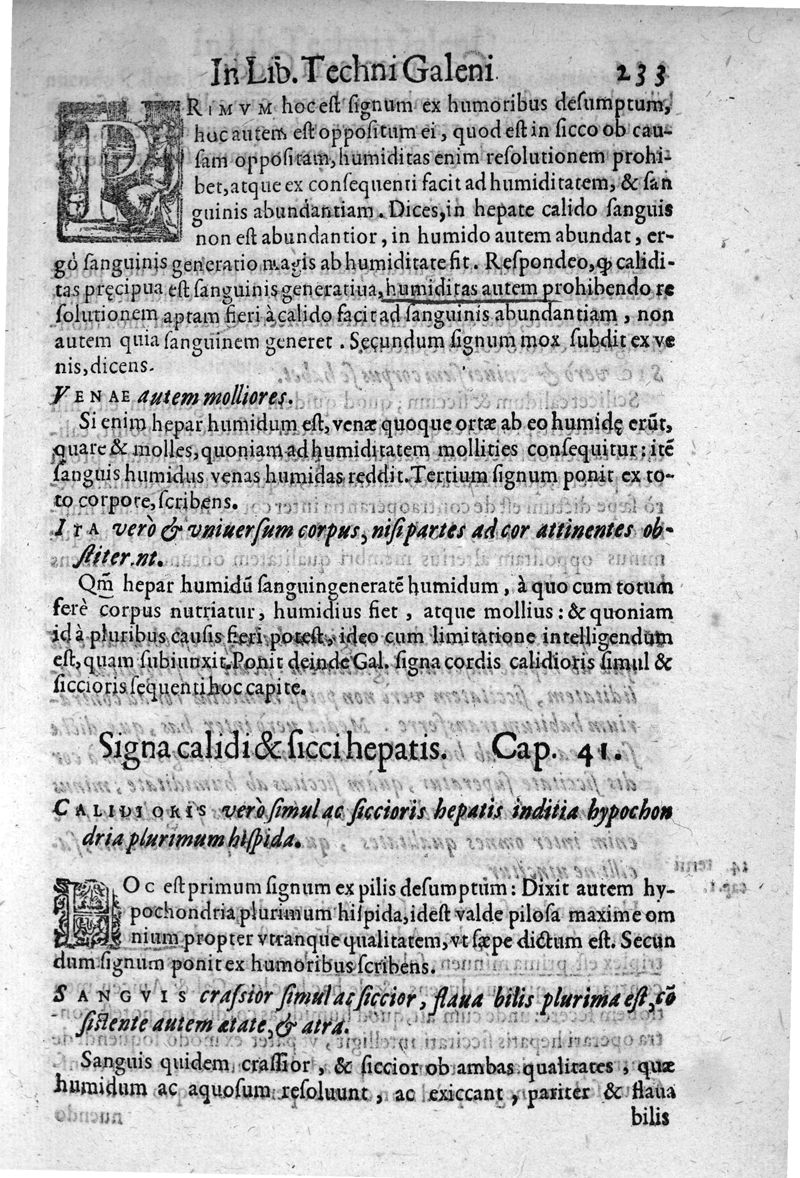 In Lib. Techni Galeni. 233
PRIMVM hoc est signum ex humoribus desumptum,
hoc autem est oppositum ei, quod est in sicco ob cau-
sam oppositam, humiditas enim resolutionem prohi-
bet, atque ex consequenti facit ad humiditatem, & san
guinis abundantiam. Dices, in hepate calido sanguis
non est abundantior, in humido autem abundat, er-
gò sanguinis generatio magis ab humiditate fit. Respondeo, ꝙ calidi-
tas pręcipua est sanguinis generatiua, humiditas autem prohibendo re
solutionem aptam fieri à calido facit ad sanguinis abundantiam, non
autem quia sanguinem generet. Secundum signum mox subdit ex ve
nis, dicens.
VENAE autem molliores.
Si enim hepar humidum est, venæ quoque ortæ ab eo humidę erūt,
quare & molles, quoniam ad humiditatem mollities consequitur; itē
sanguis humidus venas humidas reddit. Tertium signum ponit ex to-
to corpore, scribens.
ITA verò & vniuersum corpus, nisi partes ad cor attinentes ob-
stiter.nt.
Qm̃ hepar humidū sanguingeneratē humidum, à quo cum totum
ferè corpus nutriatur, humidius fiet, atque mollius: & quoniam
id à pluribus causis fieri potest, ideo cum limitatione intelligendum
est, quam subiunxit. Ponit deinde Gal. signa cordis calidioris simul &
siccioris sequenti hoc capite.
Signa calidi & sicci hepatis. Cap. 41.
CALIDIORIS verò simul ac siccioris hepatis inditia hypochon
dria plurimum hispida.
HOC est primum signum ex pilis desumptum: Dixit autem hy-
pochondria plurimum hispida, idest valde pilosa maxime om
nium propter vtranque qualitatem, vt sæpe dictum est. Secun
dum signum ponit ex humoribus scribens.
SANGVIS crassior simul ac siccior, flaua bilis plurima est, cō
sistente autem ætate, & atra.
Sanguis quidem crassior, & siccior ob ambas qualitates, quæ
humidum ac aquosum resoluunt, ac exiccant, pariter & flaua
bilis